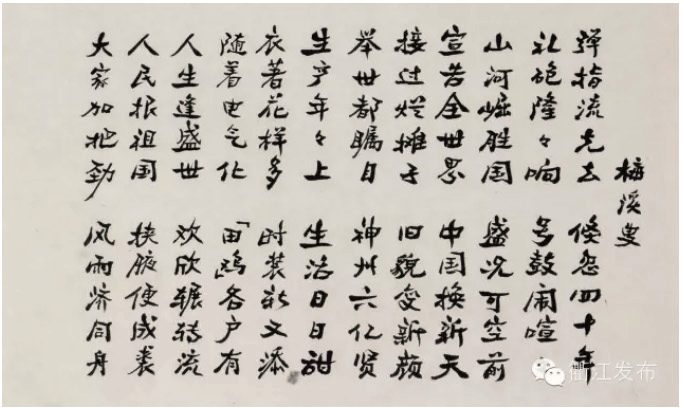 梅溪叟
弹指流光去 倏忽四十年
礼砲隆々响 号鼓闹喧
山河崛胜国 盛况可空前
宣告全世界 中国换新天
接过烂摊子 旧貌变新颜
举世都瞩目 神州六亿贤
生产年々上 生活日日甜
衣著花样多 时装新又添
随着电气化 「田」鸥各户有
人生逢盛世 欢欣辗转流
人民报祖国 挟腋便成裘
大家加把劲 风雨济同舟
衢江发布